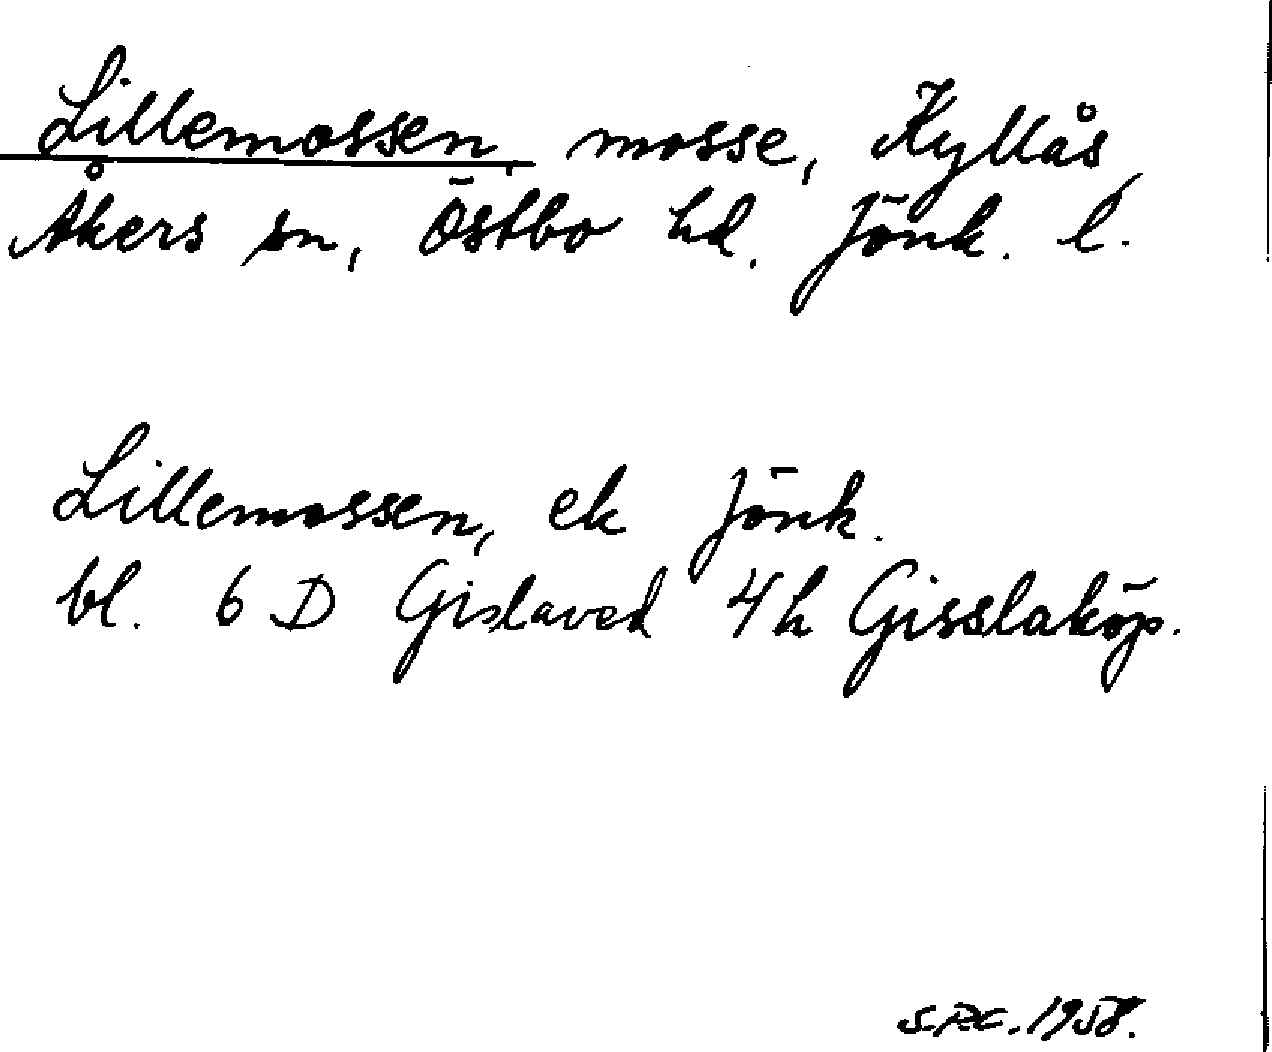 Lillemossen, mosse, Kyllås,
Åkers sn, Östbo hd. Jönk. l.
Lillemossen, ek Jönk.
bl. 6 D Gislaved 4h Gisslaköp.
1958.